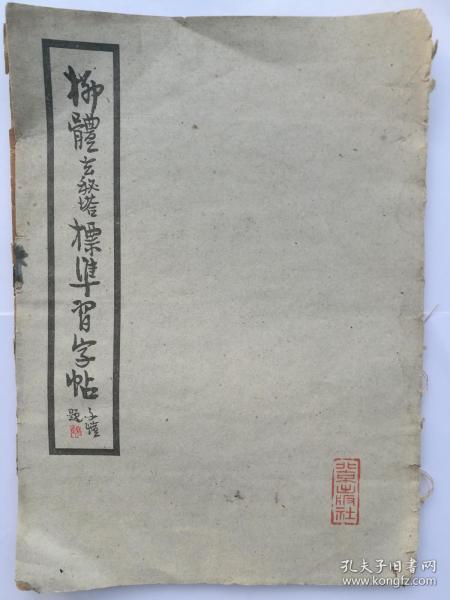 柳體玄秘塔標準習字帖
子愷
題
北京出版社
孔夫子旧书网
www.kongfz.com